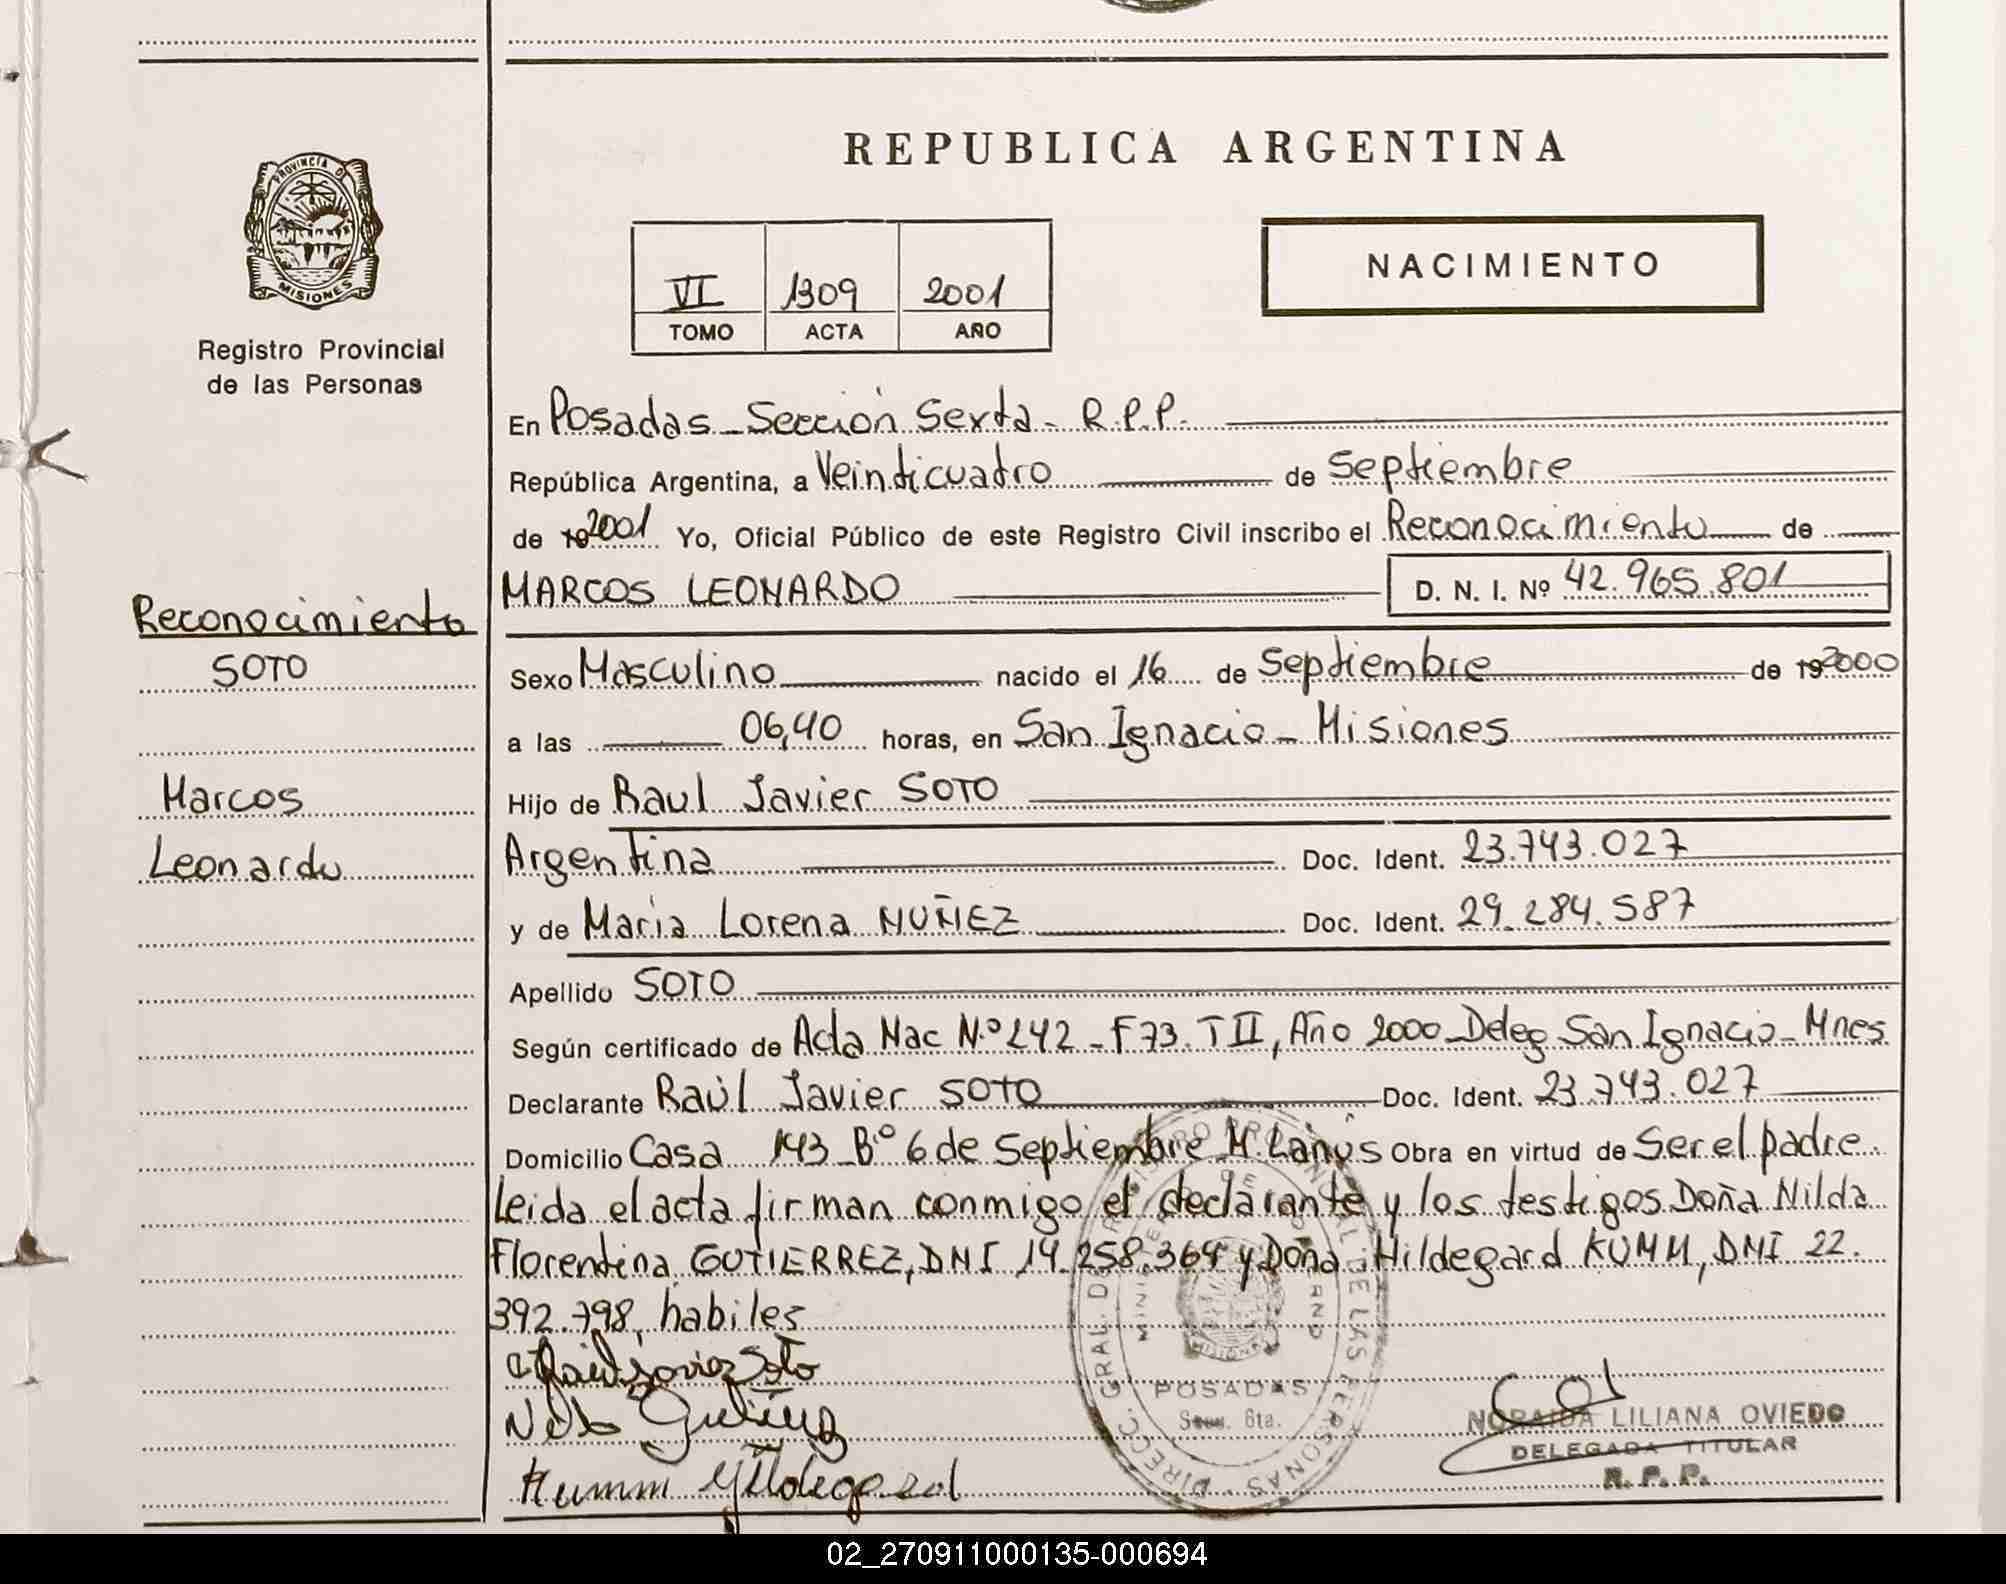 REPUBLICA ARGENTINA
PROVINCIA DE
MISIONES
Registro Provincial
de las Personas
VI 1309 2001
TOMO ACTA AÑO
NACIMIENTO
En Posadas - Sección Sexta - R.P.P.
República Argentina, a Veinticuatro de Septiembre
de 19 2001 Yo, Oficial Público de este Registro Civil inscribo el Reconocimiento de
MARCOS LEONARDO D. N. I. Nº 42.965.801
Reconocimiento
SOTO
Marcos
Leonardo
Sexo Masculino nacido el 16 de Septiembre de 19 2000
a las 06,40 horas, en San Ignacio - Misiones
Hijo de Raul Javier SOTO
Argentina Doc. Ident. 23.743.027
y de Maria Lorena NUÑEZ Doc. Ident. 29.284.587
Apellido SOTO
Según certificado de Acta Nac N.º 242 - F 73. T II, Año 2000 - Deleg San Ignacio - Mnes
Declarante Raúl Javier SOTO Doc. Ident. 23.743.027
Domicilio Casa 143 - Bº 6 de Septiembre M. Lanús Obra en virtud de Ser el padre
Leida el acta firman conmigo el declarante y los testigos Doña Nilda
Florentina GUTIERREZ, DNI 14.258.364 y Doña Hildegard KUMM, DNI 22.
392.798, habiles
Raul Javier Soto
Kumm Hildegard
DIRECC. GRAL. DE REGISTRO PROVINCIAL DE LAS PERSONAS
MISIONES
POSADAS
Secc. 6ta.
NORAIDA LILIANA OVIEDO
DELEGADA TITULAR
R. P. P.
02_270911000135-000694